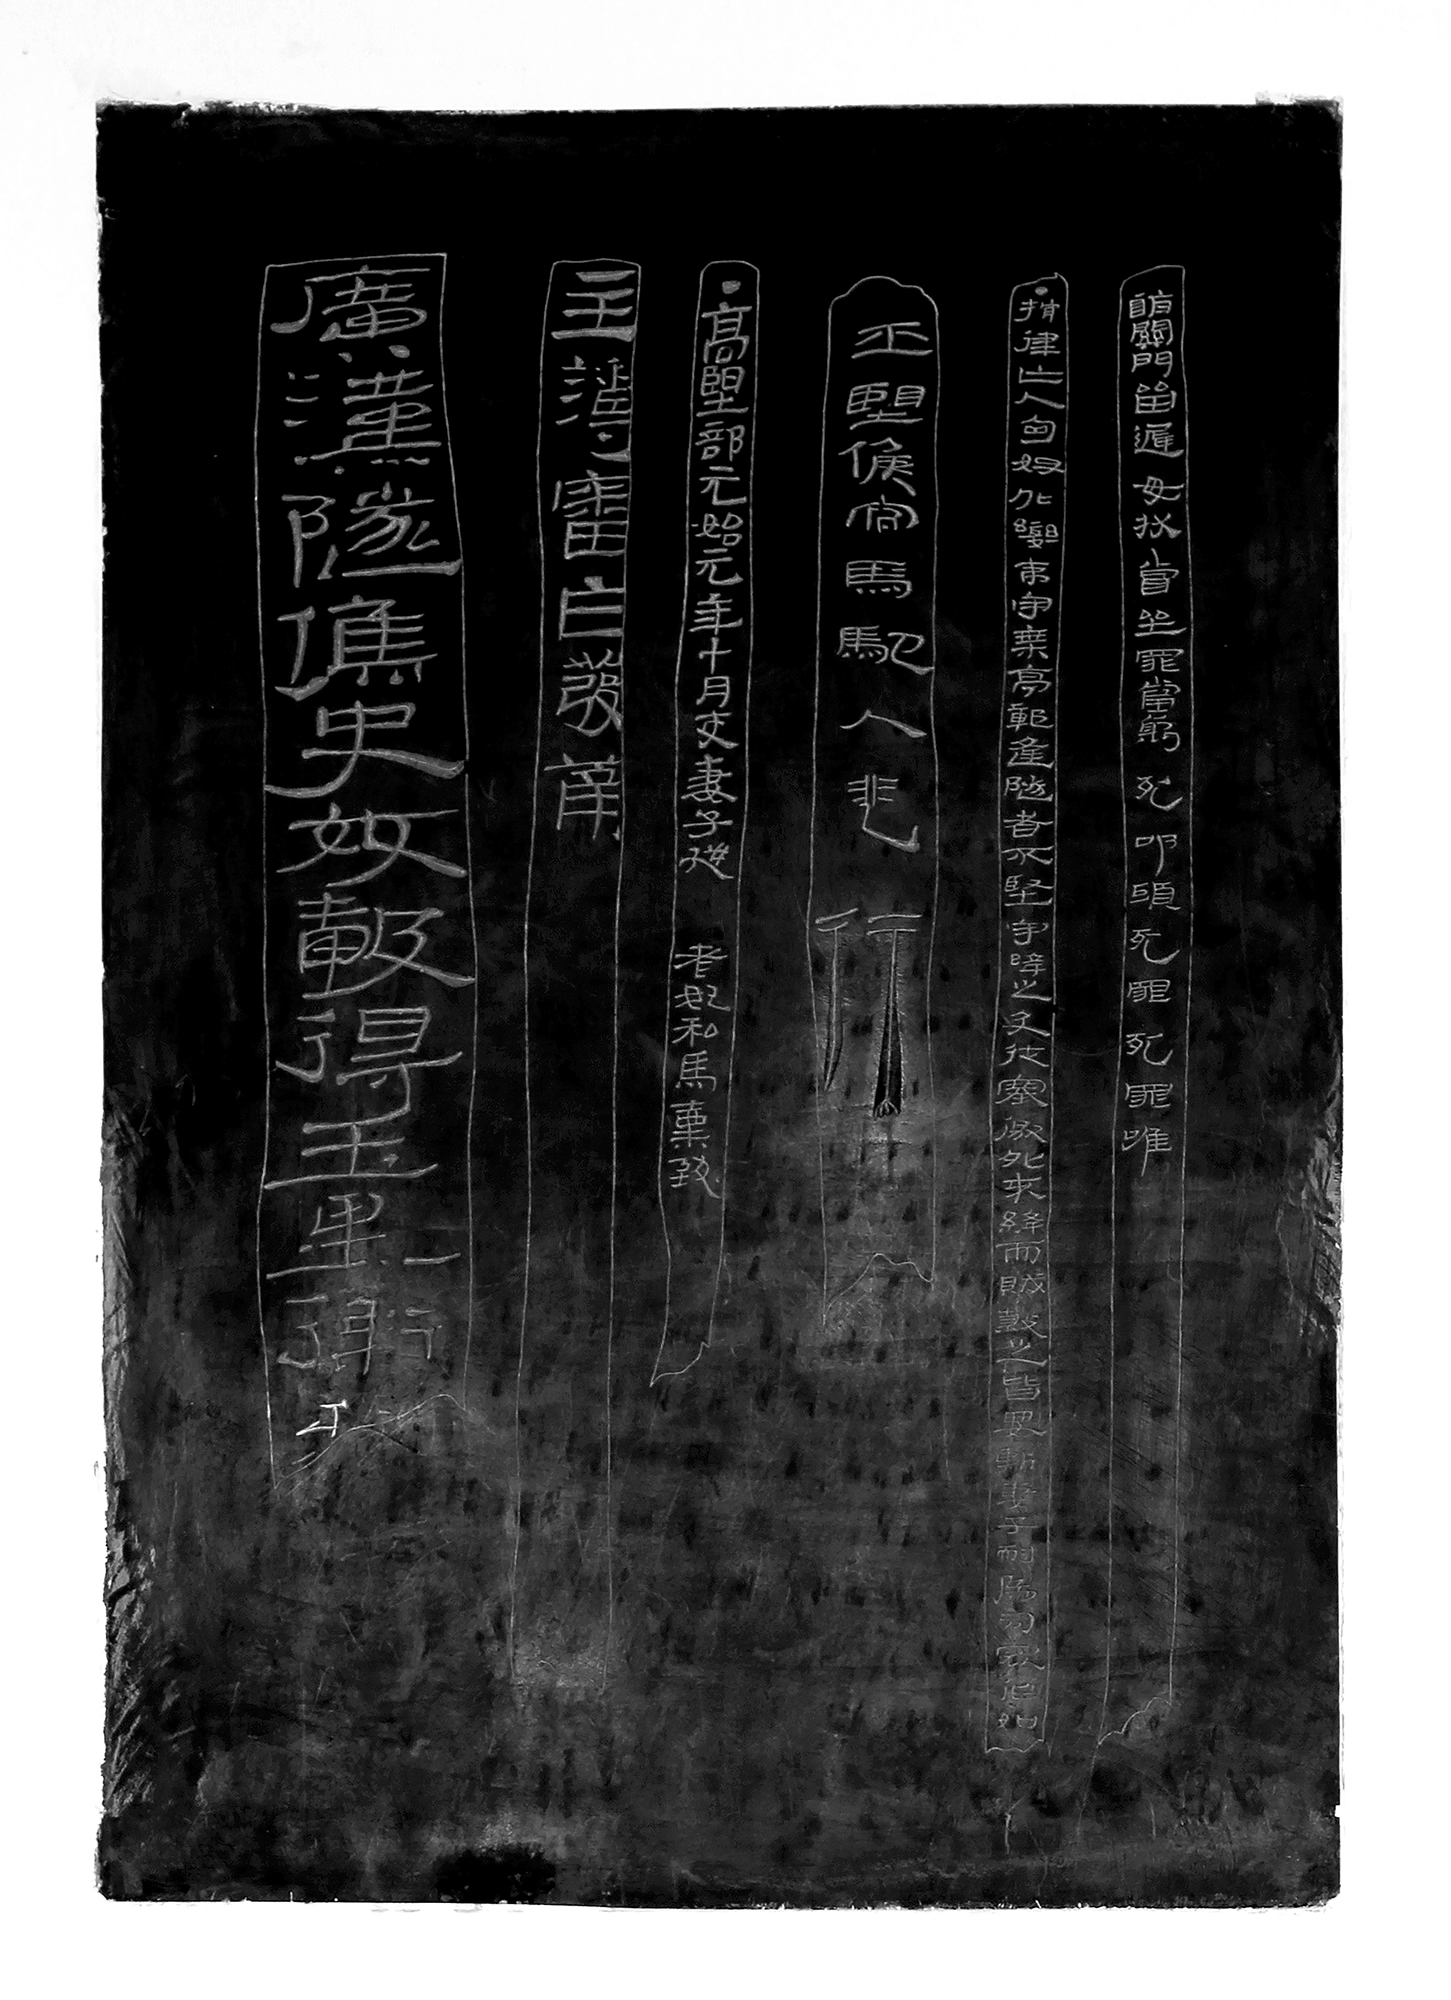 關門留遲毋狀當坐罪當躬死叩頭死罪死罪唯
●捕律亡入匈奴外蠻夷守棄亭鄣逢隧者不堅守降之及從塞徼外來絳而賊殺之皆要斬妻子耐為司寇作如
平望候官馬馳人走行
●高望部元始元年十月吏妻子從者奴私馬稟致
主薄審
廣漢隧史得